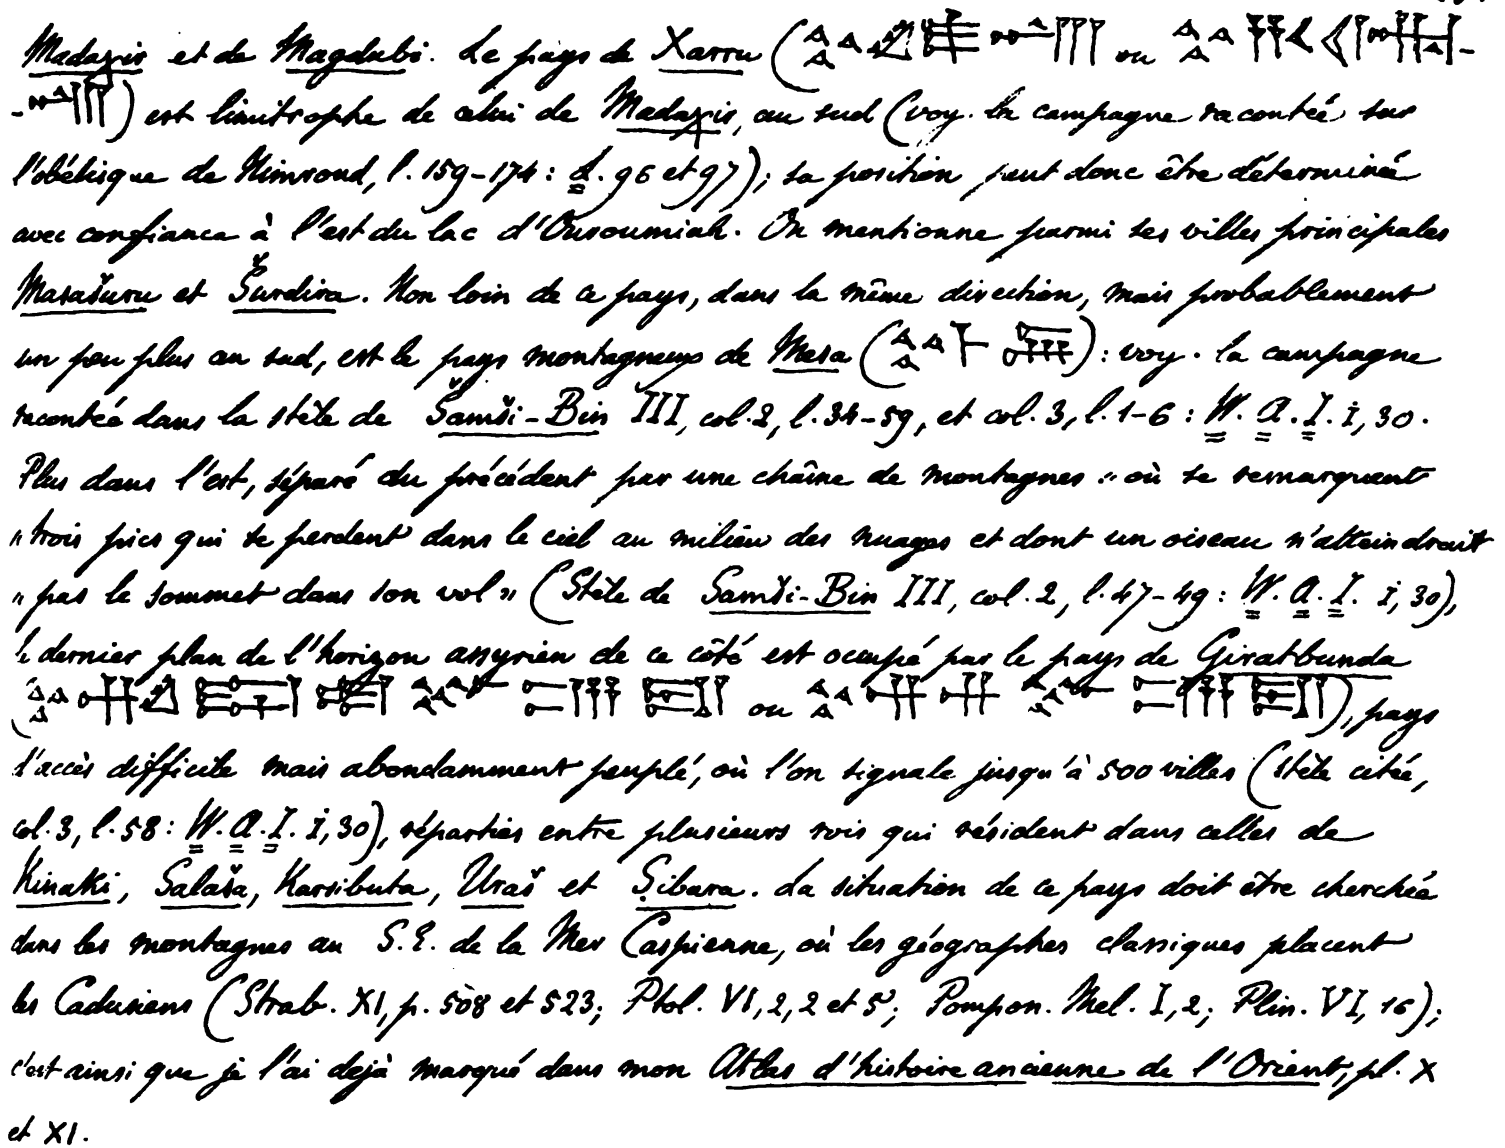 Madaχis et de Magdubi. Le pays de Xarru ( ou -
- ) est limitrophe de celui de Madaχis, au sud (voy. la campagne racontée sur
l'obélisque de Nimroud, l. 159-174 : d. 96 et 97) ; sa position peut donc être déterminée
avec confiance à l'est du lac d'Ouroumiah. On mentionne parmi ses villes principales
Masašuru et Šurdira. Non loin de ce pays, dans la même direction, mais probablement
un peu plus au sud, est le pays montagneux de Mesa ( ) : voy. la campagne
racontée dans la stèle de Šamši-Bin III, col. 2, l. 34-59, et col. 3, l. 1-6 : W. A. I. i, 30.
Plus dans l'est, séparé du précédent par une chaîne de montagnes « où se remarquent
« trois pics qui se perdent dans le ciel au milieu des nuages et dont un oiseau n'atteindrait
« pas le sommet dans son vol » (Stèle de Samši-Bin III, col. 2, l. 47-49 : W. A. I. i, 30),
le dernier plan de l'horizon assyrien de ce côté est occupé par le pays de Giratbunda
( ou ), pays
d'accès difficile mais abondamment peuplé, où l'on signale jusqu'à 500 villes (stèle citée,
col. 3, l. 58 : W. A. I. i, 30), réparties entre plusieurs rois qui résident dans celles de
Kinaki, Salaša, Karsibuta, Uraš et Ṣibara. La situation de ce pays doit être cherchée
dans les montagnes au S. E. de la Mer Caspienne, où les géographes classiques placent
les Cadusiens (Strab. XI, p. 508 et 523 ; Ptol. VI, 2, 2 et 5 ; Pompon. Mel. I, 2 ; Plin. VI, 16) ;
c'est ainsi que je l'ai dejà marqué dans mon Atlas d'histoire ancienne de l'Orient, pl. X
et XI.